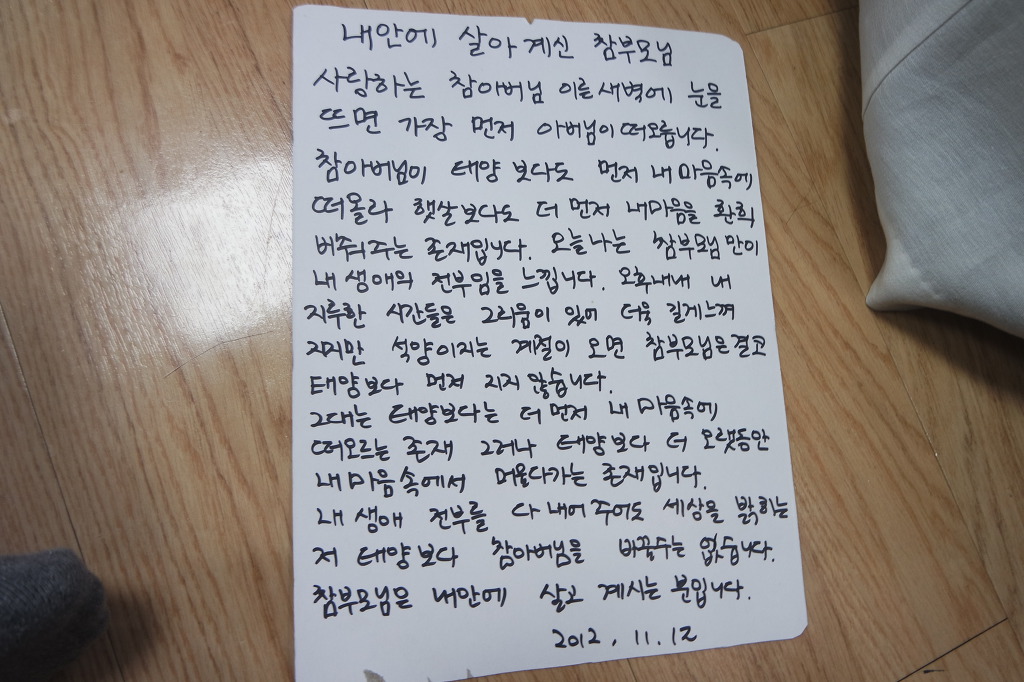 내안에 살아계신 참부모님
사랑하는 참아버님 이른새벽에 눈을
뜨면 가장 먼저 아버님이 떠오릅니다.
참아버님이 태양 보다도 먼저 내 마음속에
떠올라 햇살보다도 더 먼저 내마음을 환희
비춰주는 존재입니다. 오늘나는 참부모님만이
내 생애의 전부임을 느낍니다. 오후내내 내
지루한 시간들은 그리움이 있어 더욱 길게느껴
지지만 석양이지는 계절이 오면 참부모님은결코
태양보다 먼저 지지 않습니다.
그대는 태양보다는 더 먼저 내 마음속에
떠오르는 존재 그러나 태양보다 더 오랫동안
내 마음속에서 머물다가는 존재입니다.
내 생애 전부를 다 내어 주어도 세상을 밝히는
저 태양보다 참아버님을 바꿀수는 없습니다.
참부모님은 내안에 살고 계시는 분입니다.
2012. 11. 12